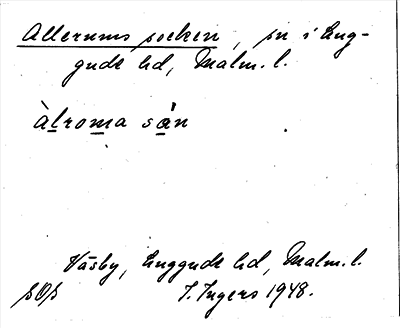 Allerums socken, sn i Lug-
gude hd, Malm. l.
àlroma sån
Väsby, Luggude hd, Malm. l.
I. Ingers 1948.